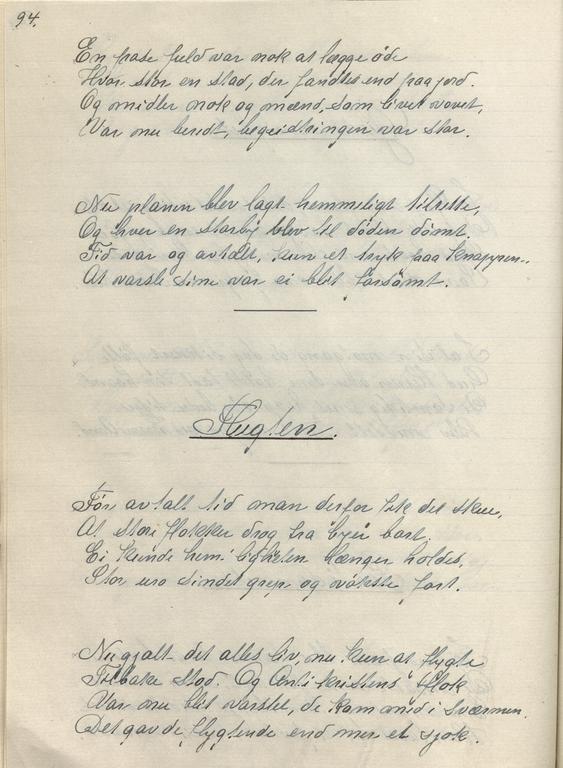 94.
En haae fuld var nok at lægge øde
Hvor stor en stad, der fandtes end paa jord.
Og midler nok og mænd, som livet vovet,
Var nu beredt, begeistringen var stor.
Nu planen blev lagt hemmeligt tilrette,
Og hver en storby blev til døden dømt.
Tid var og avtalt, kun et tryk paa knappen,
At varsle sine var ei blit forsømt.
Flugten.
Før avtalt tid man derfor fik det skue,
At store flokker drog fra byer bort.
Ei kunde hem'ligheten længer holdes,
Stor uro sindet grep og vokste fort.
Nu gjalt det alles liv, nu kun at flygte
Tilbake stod. Og Antikristens flok
Var nu blit varslet, de kom med i sværmen.
Det gav de flygtende end mer et sjok.